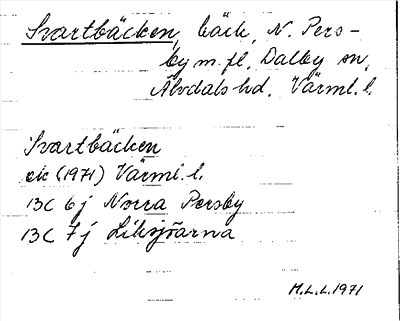 Svartbäcken, bäck, N. Pers-
by m.fl., Dalby sn,
Älvdals hd, Värml. l.
Svartbäcken
eic (1971) Värml. l.
13C 6j Norra Persby
13C 7j Liksjöarna
M.L.L. 1971